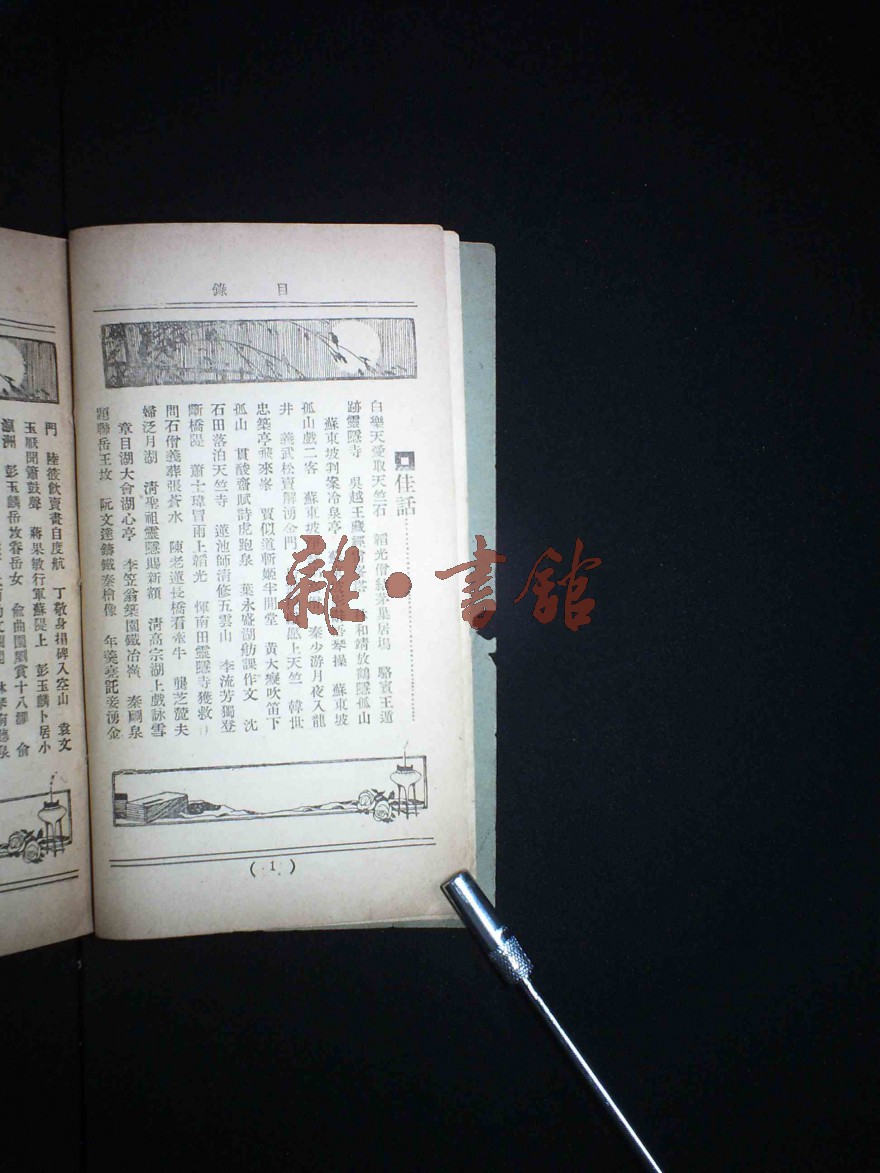 目錄
佳話
白樂天愛取天竺石 韜光僧 巢居塢 駱賓王遁
跡靈隱寺 吳越王藏經 和靖放鶴隱孤山
孤山戲二客 蘇東坡 秦少游月夜入龍
蘇東坡判案冷泉亭 琴操 蘇東坡
井 義武松賣解湧金門 感上天竺 韓世
忠築亭飛來峯 賈似道斬姬半閒堂 黃大癡吹笛下
孤山 貫酸齋賦詩虎跑泉 葉永盛湖舫課作文 沈
石田落泊天竺寺 蓮池師清修五雲山 李流芳獨登
斷橋隄 蕭士瑋冒雨上韜光 惲南田靈隱寺獲救
問石僧義葬張蒼水 陳老蓮長橋看牽牛 龔芝麓夫
婦泛月湖 清聖祖靈隱賜新額 清高宗湖上戲詠雪
章目湖大會湖心亭 李笠翁築園鐵冶嶺 秦澗泉
題聯岳王墳 阮文達鑄鐵秦檜像 年羹堯託妾湧金
(1)
門 陸筱飲賣畫自度航 丁敬身揹碑入空山 袁文
玉屏聞簫鼓聲 蔣果敏行軍蘇隄上 彭玉麟卜居小
瀛洲 彭玉麟岳墳眷岳女 俞曲園剧賞十八灘 俞